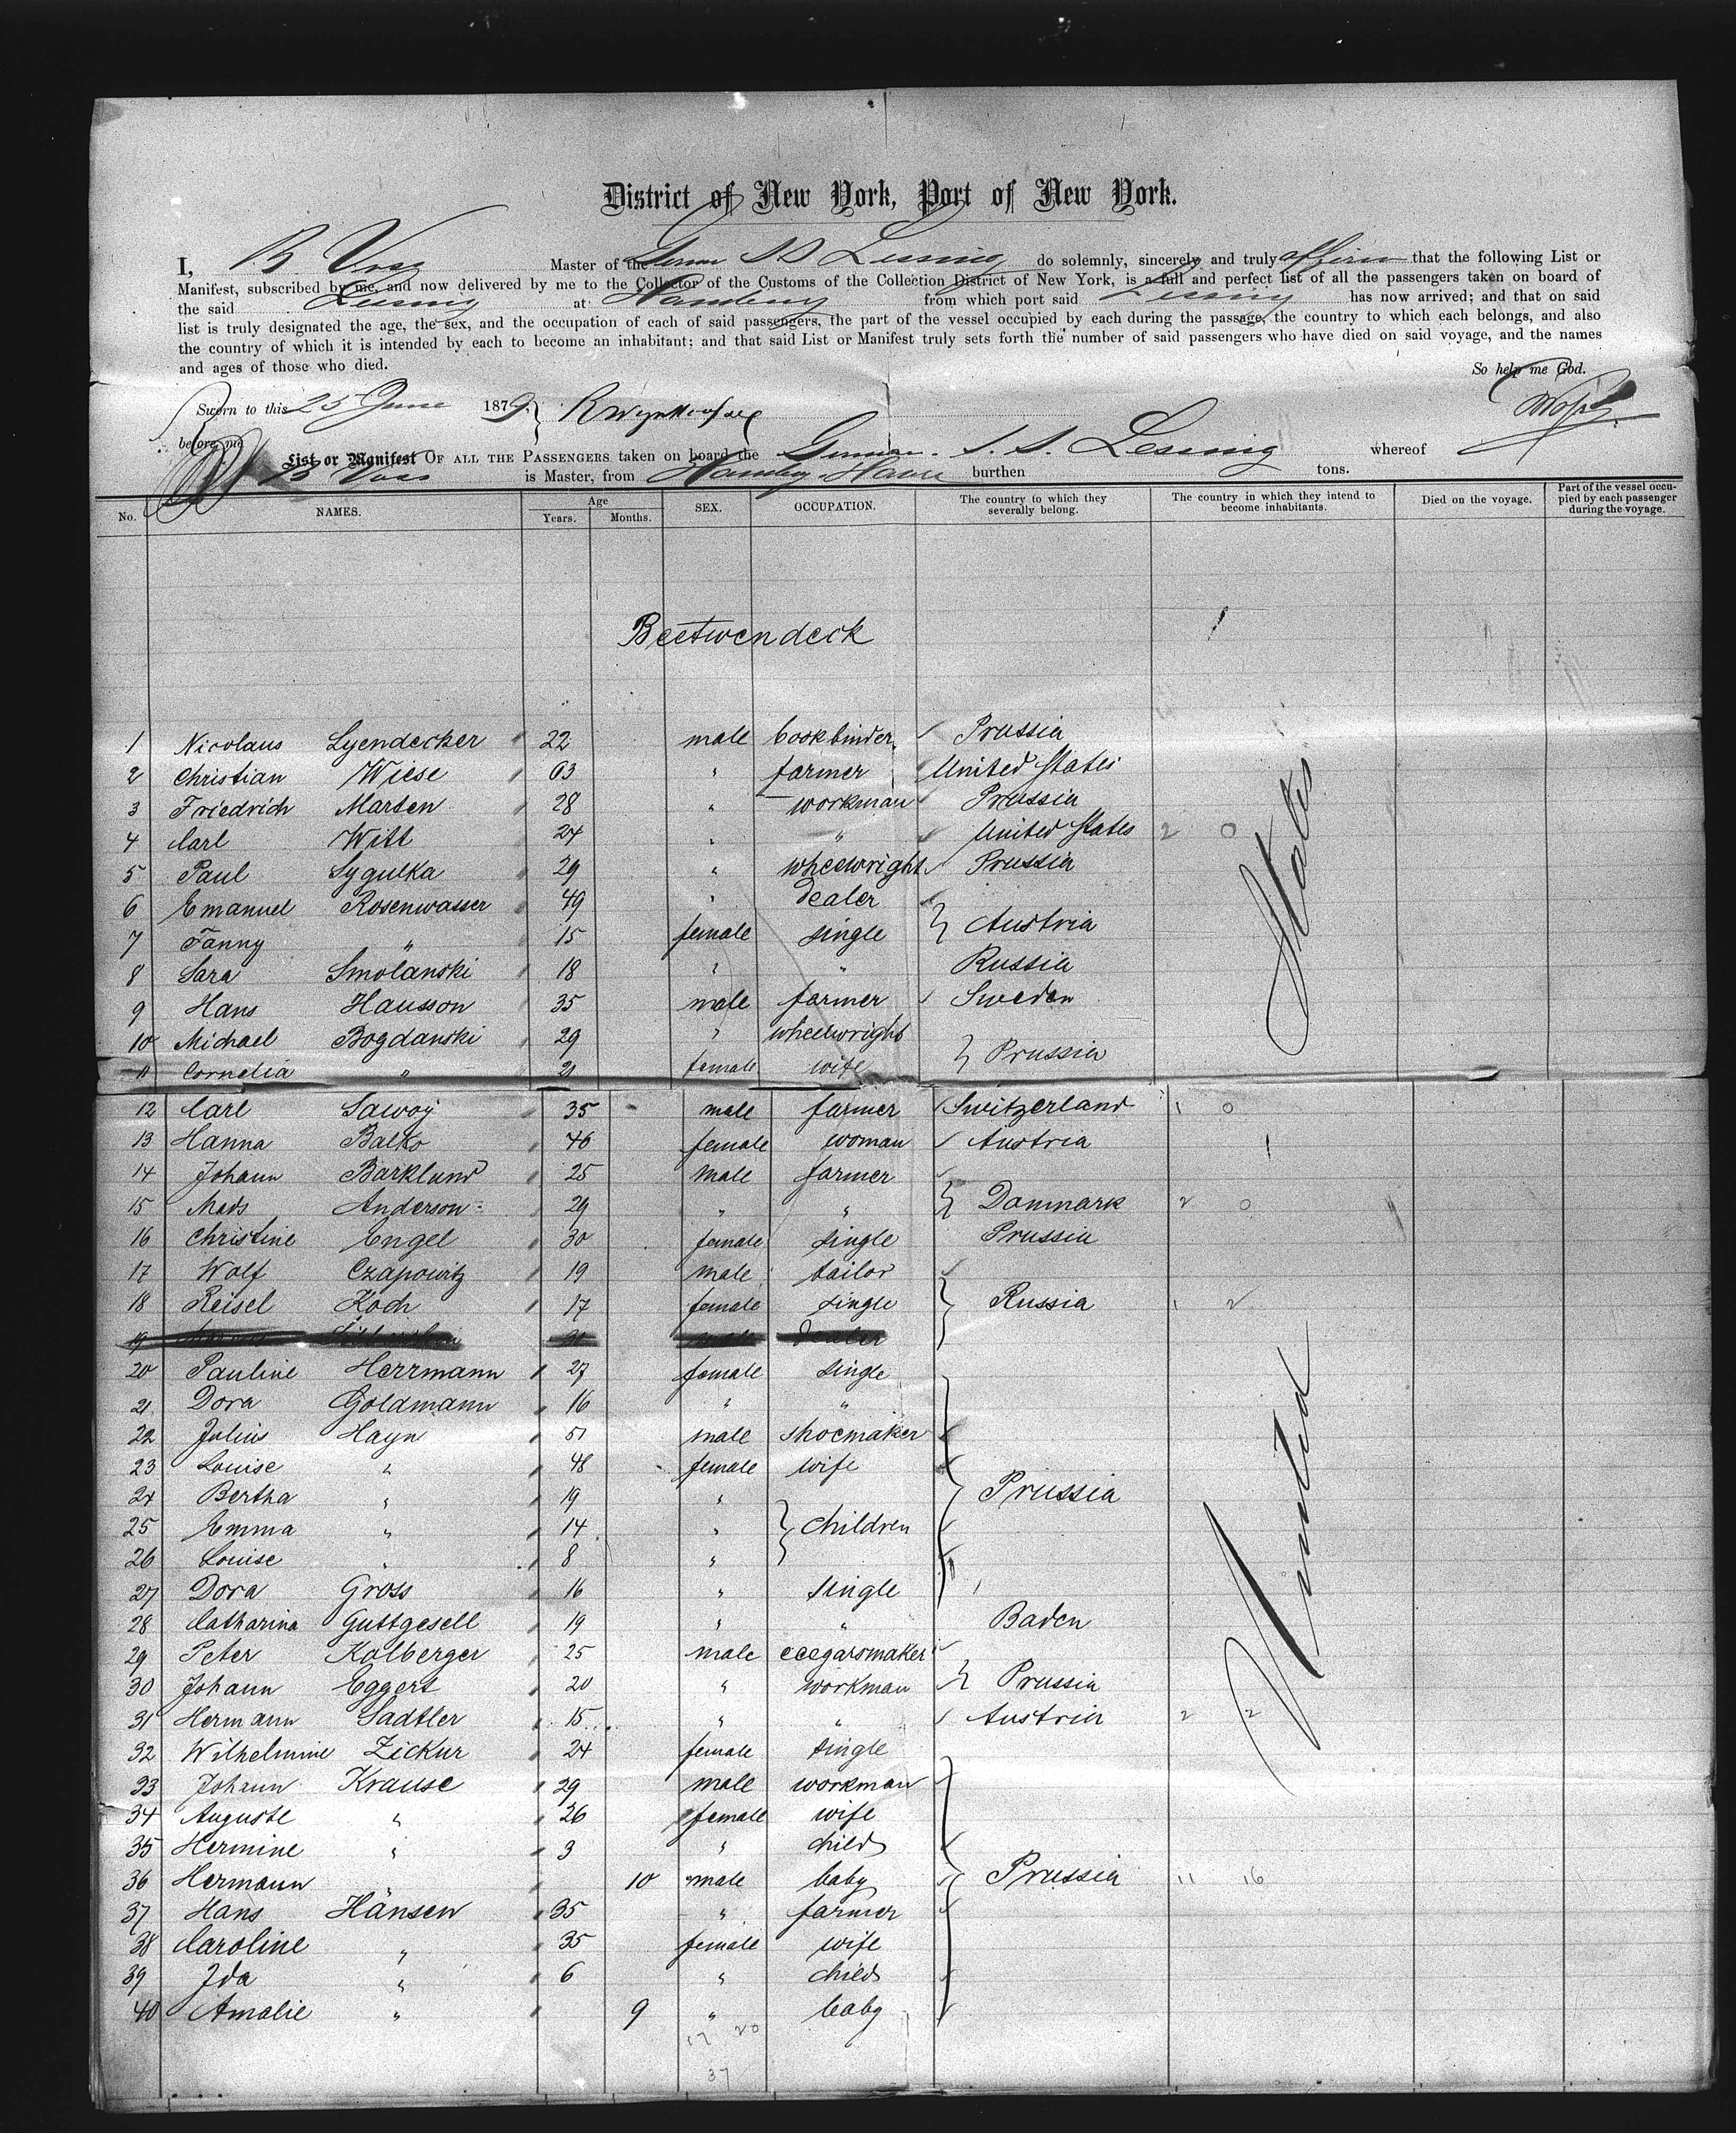 District of New York, Port of New York.
I, B. Voss Master of the Germ SS Lessing do solemnly, sincerely and truly affirm that the following List or
Manifest, subscribed by me, and now delivered by me to the Collector of the Customs of the Collection District of New York, is a full and perfect list of all the passengers taken on board of
the said Lessing at Hamburg from which port said Lessing has now arrived; and that on said
list is truly designated the age, the sex, and the occupation of each of said passengers, the part of the vessel occupied by each during the passage, the country to which each belongs, and also
the country of which it is intended by each to become an inhabitant; and that said List or Manifest truly sets forth the number of said passengers who have died on said voyage, and the names
and ages of those who died. So help me God.
Sworn to this 25 June 1879
before me
List or Manifest OF ALL THE PASSENGERS taken on board the German S. S. Lessing whereof
B Voss is Master, from Hamburg Havre burthen tons.
No. NAMES. Age Years. Months. SEX. OCCUPATION. The country to which they severally belong. The country in which they intend to become inhabitants. Died on the voyage. Part of the vessel occupied by each passenger during the voyage.
Beetwendeck
1 Nicolaus Lyendecker 22 male bookbinder Prussia
2 Christian Wiese 63 " farmer United States
3 Friedrich Marten 28 " workman Prussia
4 Carl Witt 24 " " United States 2 0
5 Paul Sygulka 29 " wheelwright Prussia
6 Emanuel Rosenwasser 49 " dealer
7 Fanny " 15 female single } Austria
8 Sara Smolanski 18 " " Russia
9 Hans Hausson 35 male farmer Sweden
10 Michael Bogdanski 29 " wheelwright
11 Cornelia " 21 female wife } Prussia
12 Carl Sawoy 35 male farmer Switzerland 1 0
13 Hanna Balko 46 female woman Austria 1
14 Johann Barklund 25 male farmer
15 Mads Anderson 29 " " } Danmark 2 0
16 Christine Engel 30 female single Prussia
17 Wolf Czapowitz 19 male tailor
18 Reisel Koch 17 female single } Russia 1 2
19 dealer
20 Pauline Herrmann 27 female single
21 Dora Goldmann 16 " "
22 Julius Hayn 51 male shoemaker
23 Louise " 48 female wife
24 Bertha " 19 " } Prussia
25 Emma " 14 " } children
26 Louise " 8 "
27 Dora Gross 16 " single
28 Catharina Guttgesell 19 " " Baden
29 Peter Kalberger 25 male ceegarsmaker
30 Johann Eggert 20 " workman } Prussia
31 Hermann Sadtler 15 " " Austria 2 2
32 Wilhelmine Zickur 24 female single
33 Johann Krause 29 male workman
34 Auguste " 26 female wife
35 Hermine " 3 " child
36 Hermann " 10 male baby } Prussia 11 16
37 Hans Hänsen 35 " farmer
38 Caroline " 35 female wife
39 Ida " 6 " child
40 Amalie " 9 " baby
17 20
37
United States